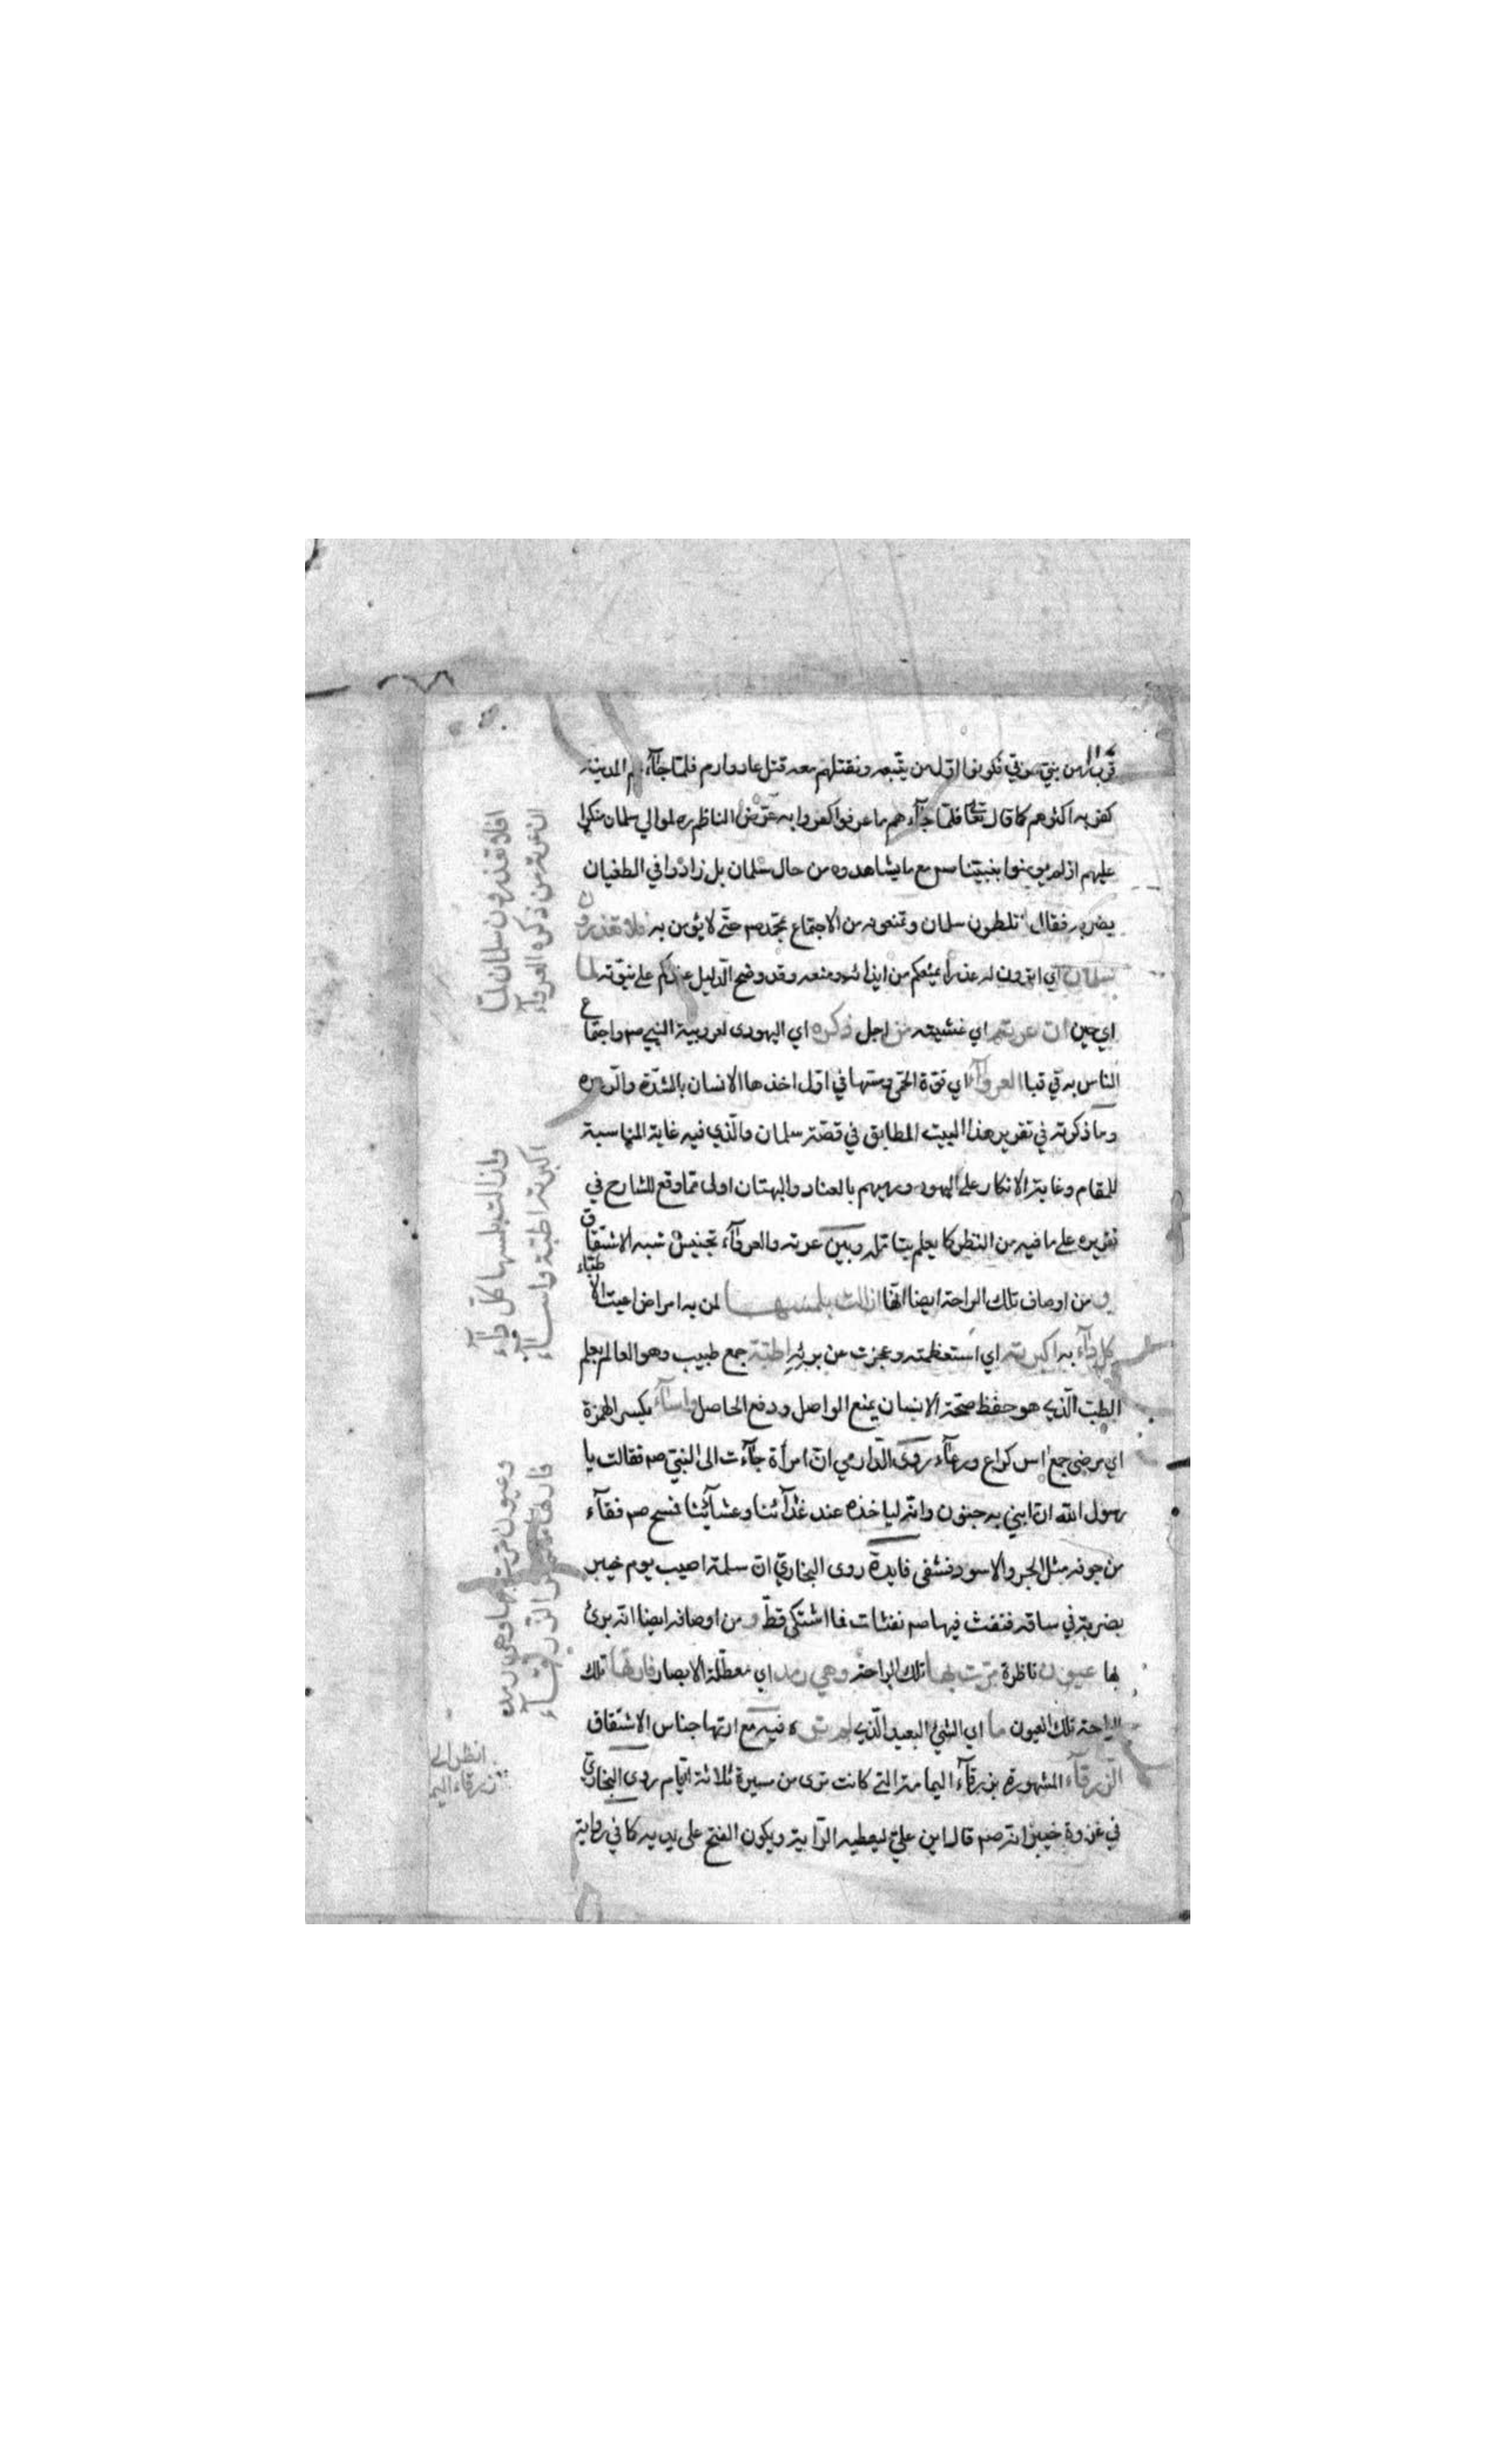 قرب زمن بنيّ سوفي فكونوا اوّل من يتّبعه ونقتلهم معه قتل عاد وارم فلمّا جآءهم المدينة
كفر به اكثرهم كما قال تعالى فلمّا جآءهم ما عرفوا كفروا به عرّض الناظم ره لموالي سلمان منكرا
عليهم اذ لم يومنوا بنبيّنا صم مع ما يشاهدوه من حال سلمان بل زادوا في الطغيان
يضربه فقال تلطون سلمان وتمنعونه من الاجتماع بمحمّد صم حتّى لا يؤمن به افلا تعذرون
سلمان اي اترون له عذرا يمنعكم من ايذائه ومنعه وقد وضح الدليل عندكم على نبوّته لما
اي حين ان عرته اي غشيته من اجل ذكره اي اليهودى لعروبية النبي صم واجتماع
الناس به في قبا العروآء اي قوّة الحمّى ومسّها في اوّل اخذها الانسان بالشدّة والرعدة
وما ذكرته في تقرير هذا البيت المطابق في قصّة سلمان والّذي فيه غاية المناسبة
للمقام وغاية الانكار على اليهود ورميهم بالعناد والبهتان اولى ممّا وقع للشارح في
تقريره على ما فيه من النظر كما يعلم بتامّله وبين عرته والعروآء تجنيس شبه الاشتقاق
و من اوصاف تلك الراحة ايضا انّها ازالت بلمسها لمن به امراض اعيت الاطبّاء
كلّ دآء به اكبرته اي استعظمته وعجزت عن برئه اطبّة جمع طبيب وهو العالم بعلم
الطبّ الّذي هو حفظ صحّة الانسان بمنع الواصل ودفع الحاصل واسآء بكسر الهمزة
اي مرضى جمع اس كراع ورعآء روى الدّارمي انّ امرأة جآءت الى النبيّ صم فقالت يا
رسول الله ان ابني به جنون وانّه لياخذه عند غدآئنا وعشآئنا فمسح صم فقآء
من جوفه مثل الجرو الاسود فشفى فايدة روى البخاريّ انّ سلمة اصيب يوم خيبر
بضربة في ساقه فنفث فيها صم نفثات فما اشتكى قطّ و من اوصافه ايضا انّه برئ
بها عيون ناظرة مرّت بها تلك الراحة وهي رمد اي معطّلة الابصار فارتها تلك
الراحة تلك العيون ما اي الشئ البعيد الّذي لم تره فيه مع ارتها جناس الاشتقاق
الزّرقآء المشهورة بزرقآء اليمامة الّتي كانت ترى من مسيرة ثلاثة ايّام روى البخاريّ
في غزوة خيبر انّه صم قال اين عليّ ليعطيه الرّاية ويكون الفتح على يديه كما في رواية
افلا تعذرون سلمان لمّا
ان عرته من ذكره العروآء
وازالت بلمسها كلّ دآء
اكبرته اطبّة واسآء
وعيون مرّت بها وهي رمد
فارتها الزّرقآء
انظر الى
زرقاء اليم